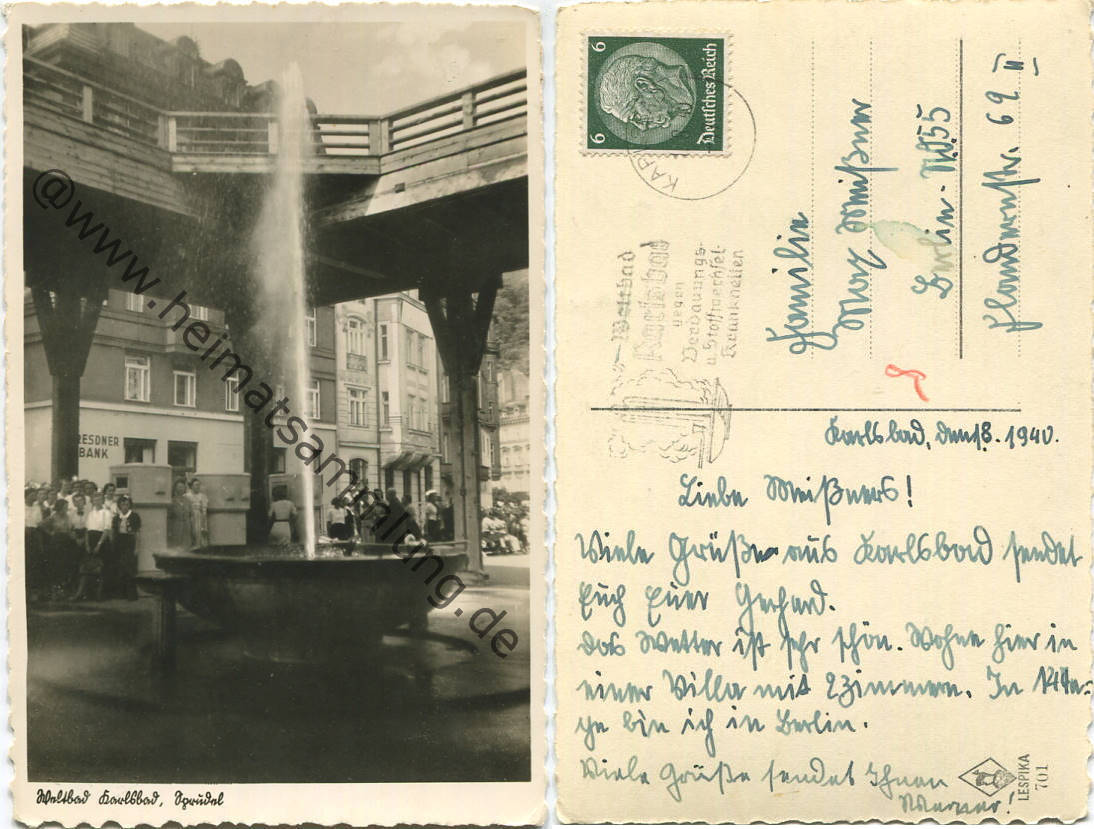 DRESDNER
BANK
Weltbad Karlsbad, Sprudel
@www.heimatsammlung.de
6 6
Deutsches Reich
KAR
Weltbad
Karlsbad
gegen
Verdauungs-
u. Stoffwechsel-
Krankheiten
Familie
Max Meißner
Berlin-NO55
Flandernstr. 69 II
Karlsbad, den 1940.
Liebe Meißners!
Viele Grüße aus Karlsbad sendet
Euch Euer Gerhard.
Das Wetter ist sehr schön. Wohne hier in
einer Villa mit 2 Zimmern. In 14 Ta-
ge bin ich in Berlin.
Viele Grüße sendet Ihnen
Werner!
LESPIKA
701